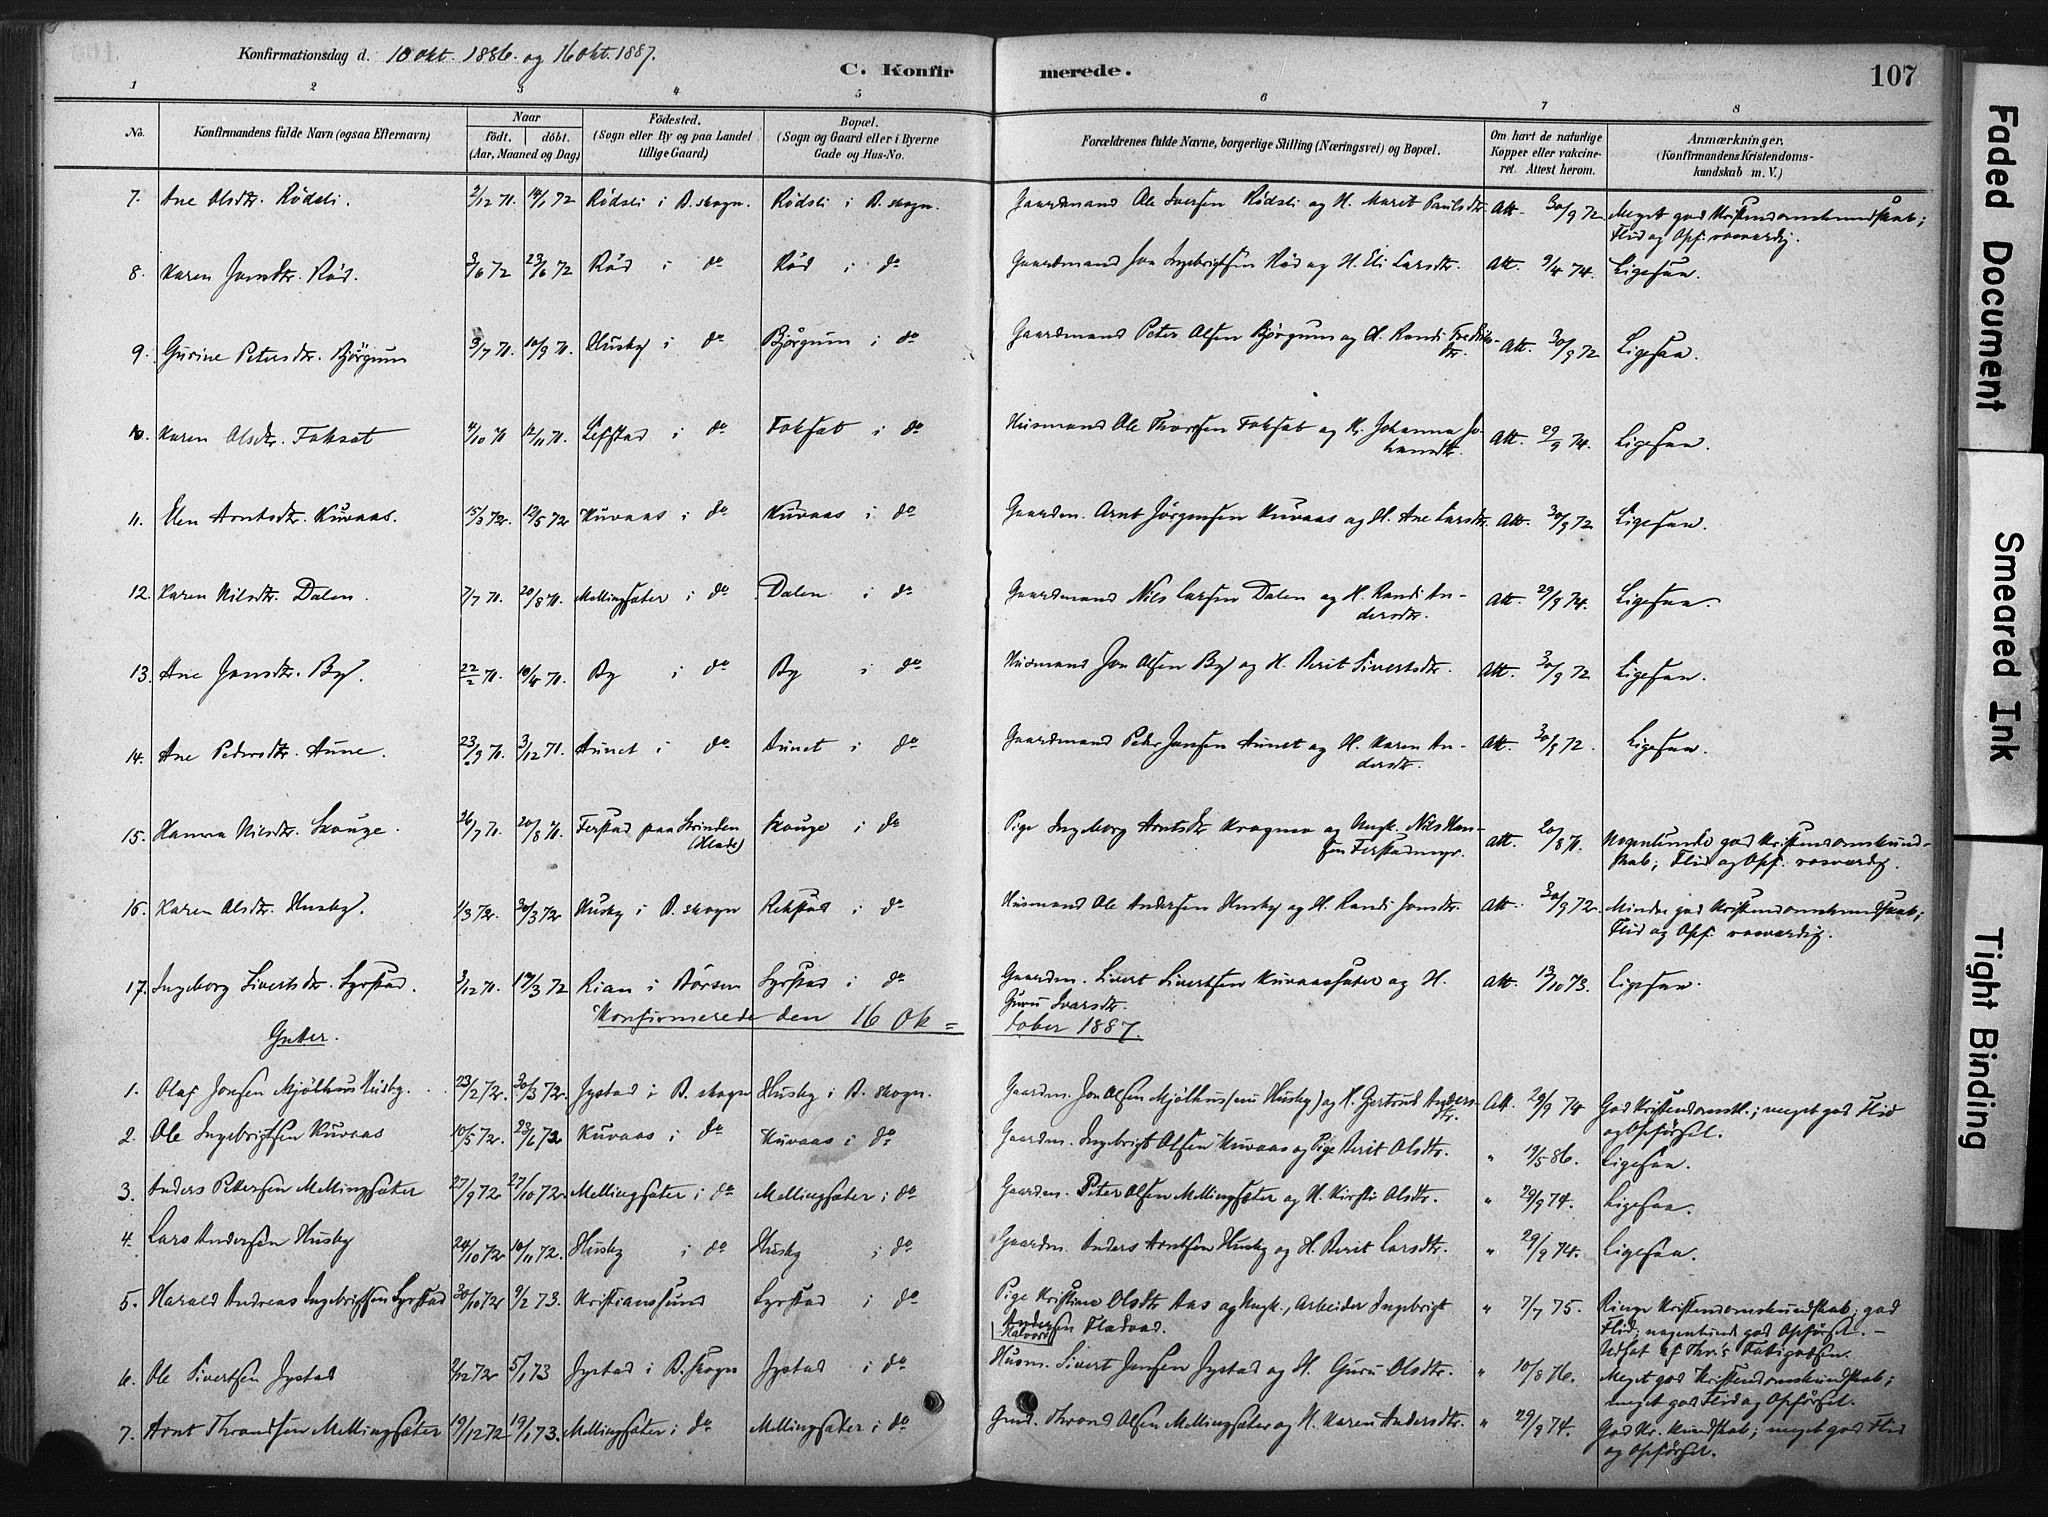 Konfirmationsdag d. 10 okt. 1886. og 16 okt. 1887.
C. Konfir merede. 107
1 2 3 4 5 6 7 8
No. Konfirmandens fulde Navn (ogsaa Efternavn) Naar født. døbt. (Aar, Maaned og Dag) Fødested. (Sogn eller By og paa Landet tillige Gaard) Bopæl. (Sogn og Gaard eller i Byerne Gade og Hus-No. Forældrenes fulde Navne, borgerlige Stilling (Næringsvei) og Bopæl. Om havt de naturlige Kopper eller vakcineret. Attest herom. Anmærkninger. (Konfirmandens Kristendomskundskab m. V.)
7. Ane Olsdtr. Rödsli 2/12 71. 14/1 72 Rödsli i B. skogn. Rödsli i B. skogn. Gaardmand Ole Iversen Rödsli og H. Marit Paulsdtr. Att. 30/9 72. Meget god Kristendomskundskab;
Flid og Opf. rosværdig.
8. Karen Jonsdtr. Röd. 3/6 72 23/6 72 Röd i do Röd i do Gaardmand Jon Ingebrigtsen Röd og H. Eli Larsdtr. Att. 9/4 74. Ligesaa.
9. Gurine Petersdtr. Bjørgum 9/7 71. 10/9 71. Husby i do Bjørgum i do Gaardmand Peter Olsen Bjørgum og H. Randi Fredriks-
dtr. Att. 30/9 72 Ligesaa.
10. Karen Olsdtr. Foksat 4/10 71 12/11 71. Lefstad i do Foksat i do Husmand Ole Thorsen Foksat og H. Johanna Jo-
hansdtr. Att. 29/9 74. Ligesaa.
11. Elen Arntsdtr. Kuvaas. 15/3 72. 12/5 72 Kuvaas i do Kuvaas i do Gaardm. Arnt Jørgensen Kuvaas og H. Ane Larsdtr. Att. 30/9 72 Ligesaa.
12. Karen Nilsdtr. Dalen. 7/7 71. 20/8 71. Mellingsæter i do Dalen i do Gaardmand Nils Larsen Dalen og H. Randi An-
dersdtr. Att. 29/9 74. Ligesaa.
13. Ane Jonsdtr. By. 22/2 71. 10/4 71. By i do By i do Husmand Jon Olsen By og H. Berit Sivertsdtr. Att. 30/9 72 Ligesaa.
14. Ane Pedersdtr. Aune. 23/9 71. 3/12 71. Aunet i do Aunet i do Gaardmand Peder Jonsen Aunet og H. Karen An-
dersdtr. Att. 30/9 72. Ligesaa.
15. Hanna Nilsdtr. Skouge. 26/7 71. 20/8 71. Ferstad paa Strinden
(Hlade) Skouge i do Pige Ingeborg Arntsdtr. og Ungk. Nils Han-
sen Ferstadmyr. Att. 20/8 71. Nogenlunde god Kristendomskund-
skab; Flid og Opf. rosværdig.
16. Karen Olsdtr. Husby. 1/3 72. 30/3 72. Husby i B. skogn Rekstad i do Husmand Ole Andersen Husby og H. Randi Jonsdtr. Att. 30/9 72. Mindre god Kristendomskundskab;
Flid og Opf. rosværdig.
17. Ingeborg Sivertsdtr. Syrstad. 3/12 71. 17/3 72 Rian i Børsen Syrstad i do Gaardm. Sivert Sivertsen Kuvaassæter og H.
Guru Ivarsdtr. Att. 13/10 73. Ligesaa.
Konfirmerede den 16 Ok=
tober 1887.
Gutter.
1. Olaf Jonsen Mjølhus Husby. 23/2 72. 30/3 72. Jystad i B. skogn Husby i B. skogn. Gaardm. Jon Olsen Mjølhus (nu Husby) og H. Gertrud Anders-
dtr. Att. 29/9 74 God Kristendomsk.; meget god Flid
og Opførsel.
2. Ole Ingebrigtsen Kuvaas 10/5 72. 23/6 72 Kuvaas i do Kuvaas i do Gaardm. Ingebrigt Olsen Kuvaas og Pige Berit Olsdtr. " 19/5 86. Ligesaa.
3. Anders Petersen Mellingsæter 27/9 72 27/10 72. Mellingsæter i do Mellingsæter i do Gaardm. Peter Olsen Mellingsæter og H. Kirsti Olsdtr. " 29/9 74. Ligesaa.
4. Lars Andersen Husby 24/10 72 10/11 72. Husby i do Husby i do Gaardm. Anders Arntsen Husby og H. Berit Larsdtr. " 29/9 74. Ligesaa.
5. Harald Andreas Ingebrigtsen Syrstad 30/10 72 9/2 73. Kristianssund Syrstad i do Pige Kristine Olsdtr. Aas og Ungk., Arbeider Ingebrigt
Andersen Fladvad. " 7/7 75. Ringe Kristendomskundskab; god
Halvors
Flid; nogenlunde god Opførsel. –
Udsat af
6. Ole Sivertsen Jystad 2/12 72 5/1 73 Jystad i B. skogn Jystad i do Husm. Sivert Jensen Jystad og H. Guru Olsdtr. " 10/8 76. Meget god Kristendomskundskab;
meget god Flid og Opførsel.
7. Arnt Throndsen Mellingsæter 19/12 72 19/1 73. Mellingsæter i do Mellingsæter i do Gmd. Thrond Olsen Mellingsæter og H. Karen Andersdtr. " 29/9 74. God Kr. Kundskab; meget god Flid
og Opførsel.
Faded Document
Smeared Ink
Tight Binding